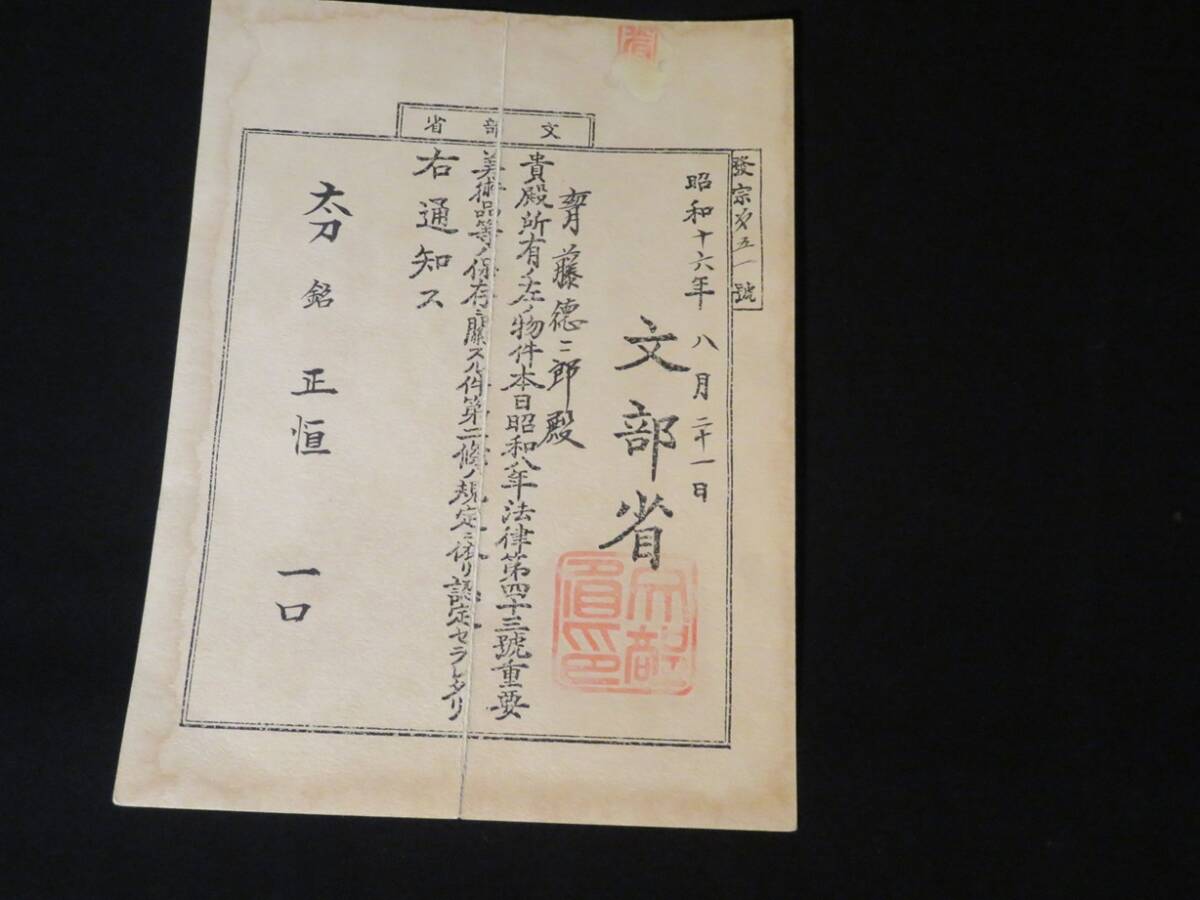 文部省
發宗第五一號
昭和十六年 八月二十一日
文部省
齊藤德二郎殿
貴殿所有ノ左ノ物件本日昭和八年法律第四十三號重要
美術品等ノ保存ニ關スル件第二條ノ規定ニ依リ認定セラレタリ
右通知ス
太刀 銘 正恒 一口
文部省印